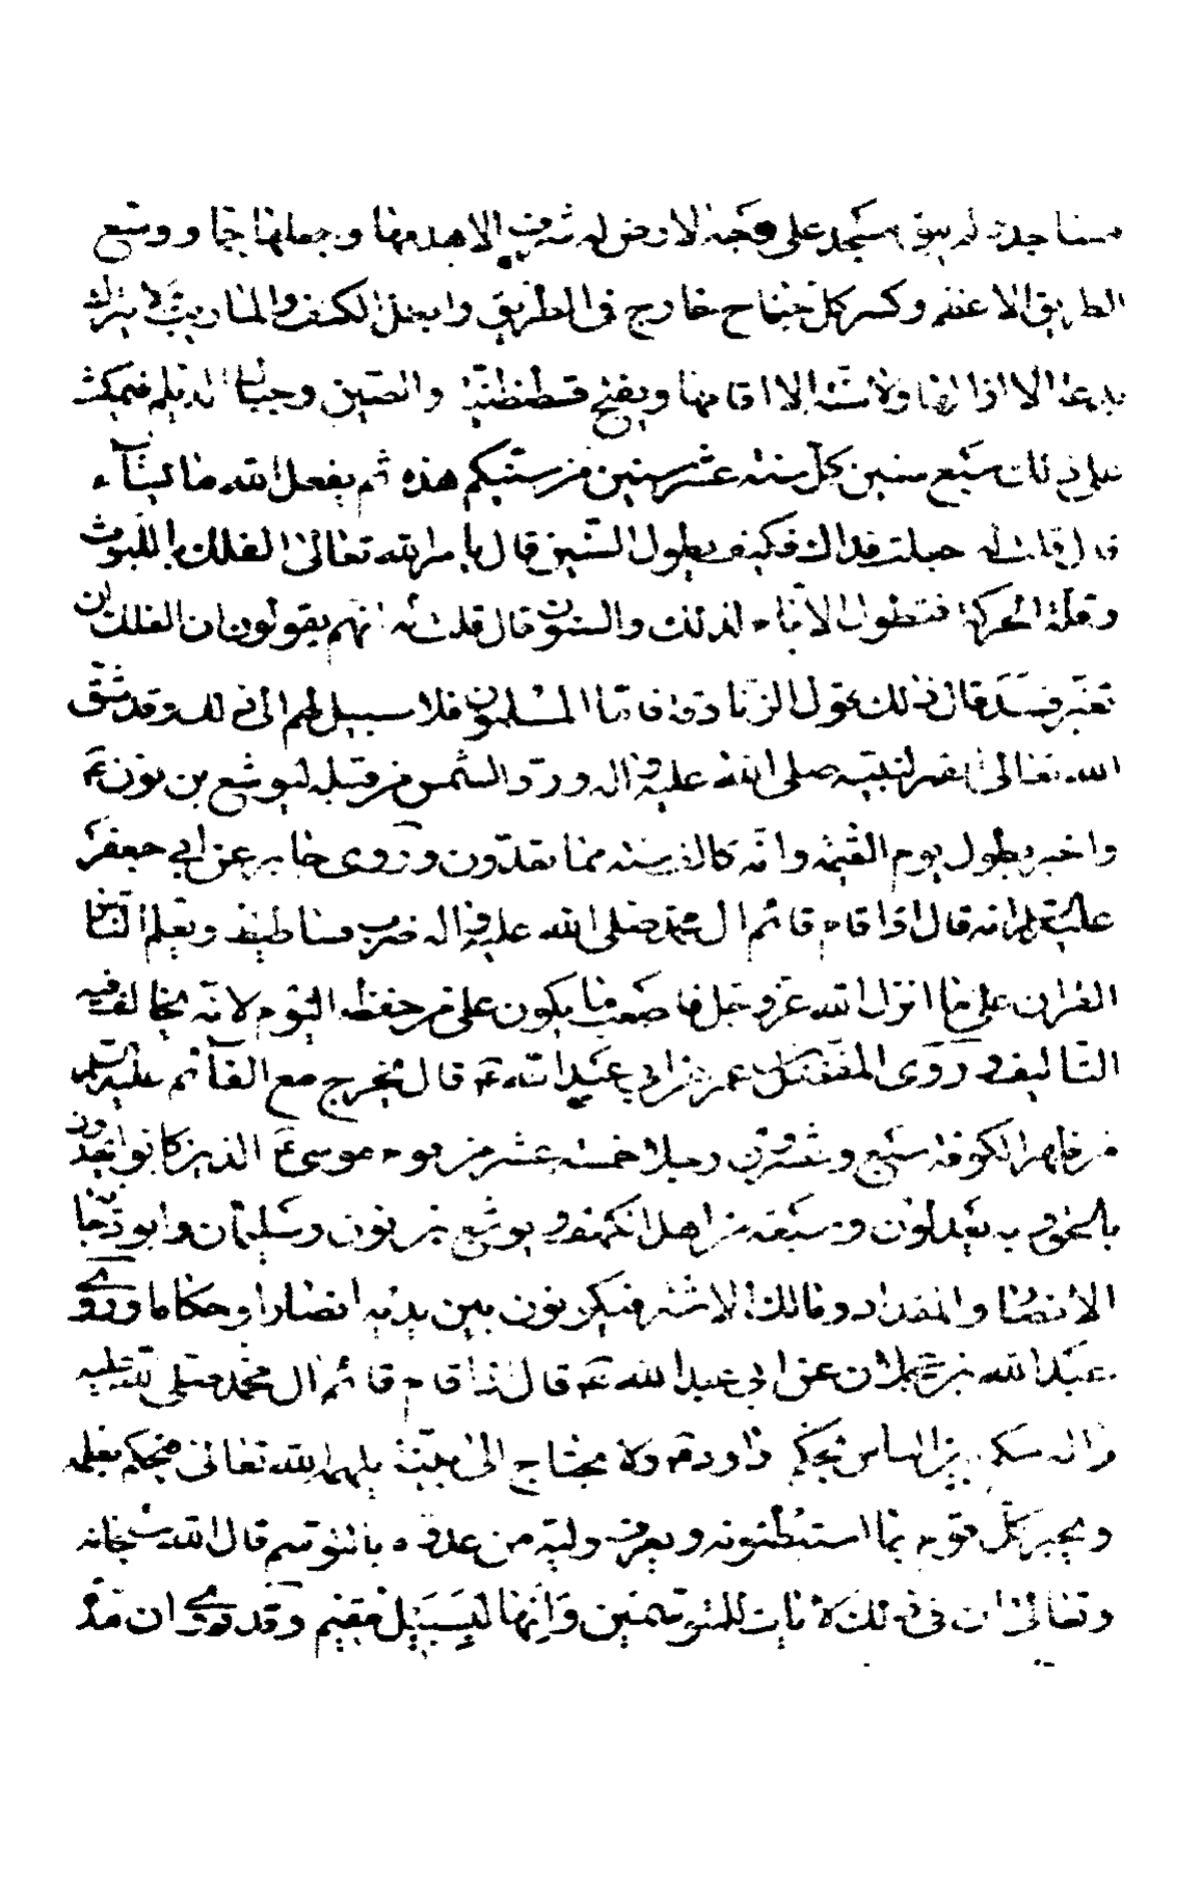 مساجد ولم يبق مسجد على وجه الارض له شرف الا هدمها وجعلها جما ووسع
الطريق الاعظم وكسر كل جناح خارج فى الطريق وابطل الكنف والمازيب ولا يترك
بدعة الا ازالها ولا سنة الا اقامها ويفتح قسطنطنية والصين وجبال الديلم فيمكث
على ذلك سبع سنين كل سنة عشر سنين من سنيكم هذه ثم يفعل الله ما يشآء
قال قلت له جعلت فداك فكيف يطول السنين قال يامر الله تعالى الفلك باللبوث
وقلة الحركة فتطول الايام لذلك والسنون قال قلت له انهم يقولون ان الفلك ان
تغير فسد قال ذلك قول الزنادقة فاما المسلمون فلا سبيل لهم الى ذلك وقد شق
الله تعالى القمر لنبيه صلى الله عليه واله ورد الشمس من قبله ليوشع بن نون ع
واخبر بطول يوم القيمة وانه كالف سنة مما تعدون وروى جابر عن ابي جعفر
عليه السلم انه قال اذا قام قائم ال محمد صلى الله عليه واله ضرب فساطيط ويعلم الناس
القران على ما انزل الله عز وجل فاصعب ما يكون على من حفظه اليوم لانه يخالف فيه
التاليف وروى المفضل بن عمر عن ابي عبد الله ع قال يخرج مع القآئم عليه السلم
من ظهر الكوفة سبع وعشرون رجلا خمسة عشر من قوم موسى ع الذين كانوا يهدون
بالحق وبه يعدلون وسبعة من اهل الكهف ويوشع بن نون وسليمان وابو دجانة
الانصارى والمقداد ومالك الاشتر فيكونون بين يديه انصارا وحكاما وروى
عبد الله بن عجلان عن ابي عبد الله ع قال اذا قام قائم ال محمد صلى الله عليه
واله حكم بين الناس بحكم داود ع ولا يحتاج الى بينة يلهمه الله تعالى فيحكم بعلمه
ويخبر كل قوم بما استبطنوه ويعرف وليه من عدوه بالتوسم قال الله سبحانه
وتعالى ان فى ذلك لايات للمتوسمين وَاِنها لَبِسَبيل مقيم وقد روى ان مدة